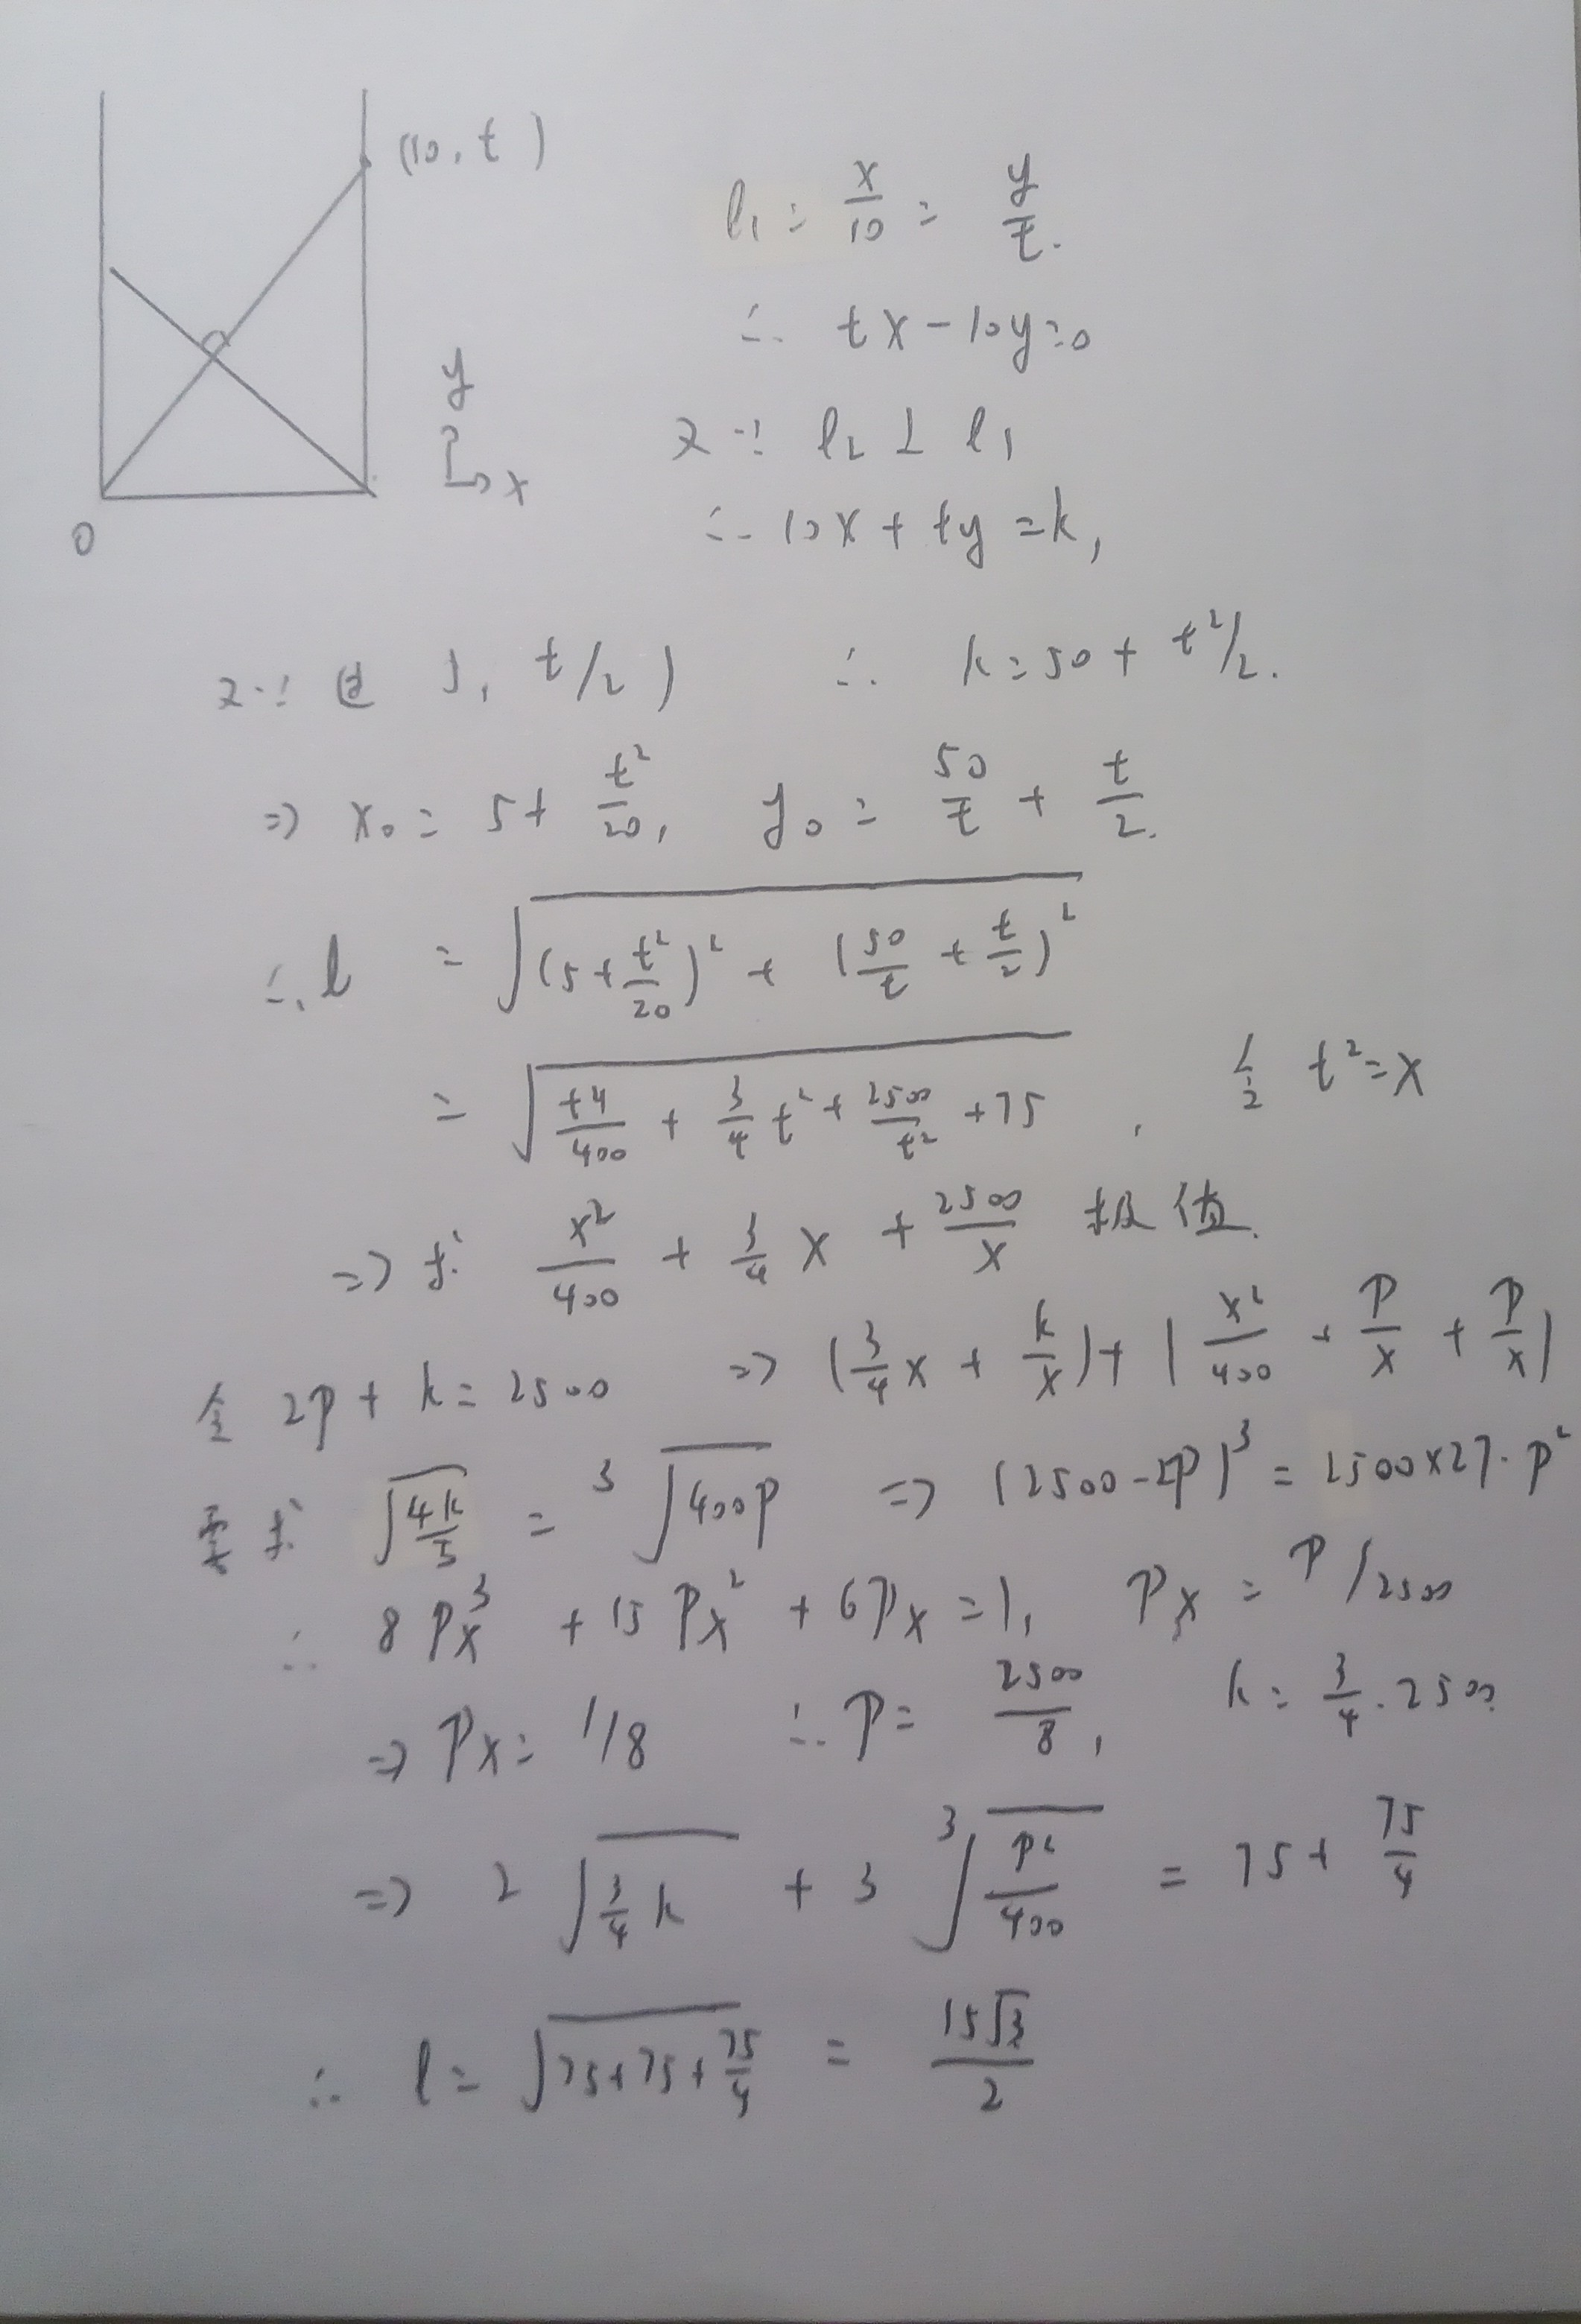 (10, t)
y
x
O
l₁: x/10 = y/t.
∴ tx-10y=0
又∵ l₂⊥l₁
∴ 10x+ty=k,
又∵ 过 5, t/2) ∴ k=50+t²/2.
⇒ x₀= 5+t²/20, y₀= 50/t + t/2.
∴ l = √((5+t²/20)² + (50/t + t/2)²)
= √(t⁴/400 + 3/4 t² + 2500/t² +75) , 令 t²=x
⇒ 求 x²/400 + 3/4 x + 2500/x 极值.
令 2p+k=2500 ⇒ (3/4 x + k/x)+(x²/400 + p/x + p/x)
要求 √(4k/3) = ³√(400p) ⇒ (2500-2p)³ = 2500×27·p²
∴ 8Px³ + 15Px² + 6Px =1, Px = P/2500
⇒ Px= 1/8 ∴ P= 2500/8, k= 3/4·2500
⇒ 2√(3/4 k) + 3 ³√(p²/400) = 75+ 75/4
∴ l= √(75+75+75/4) = 15√3/2